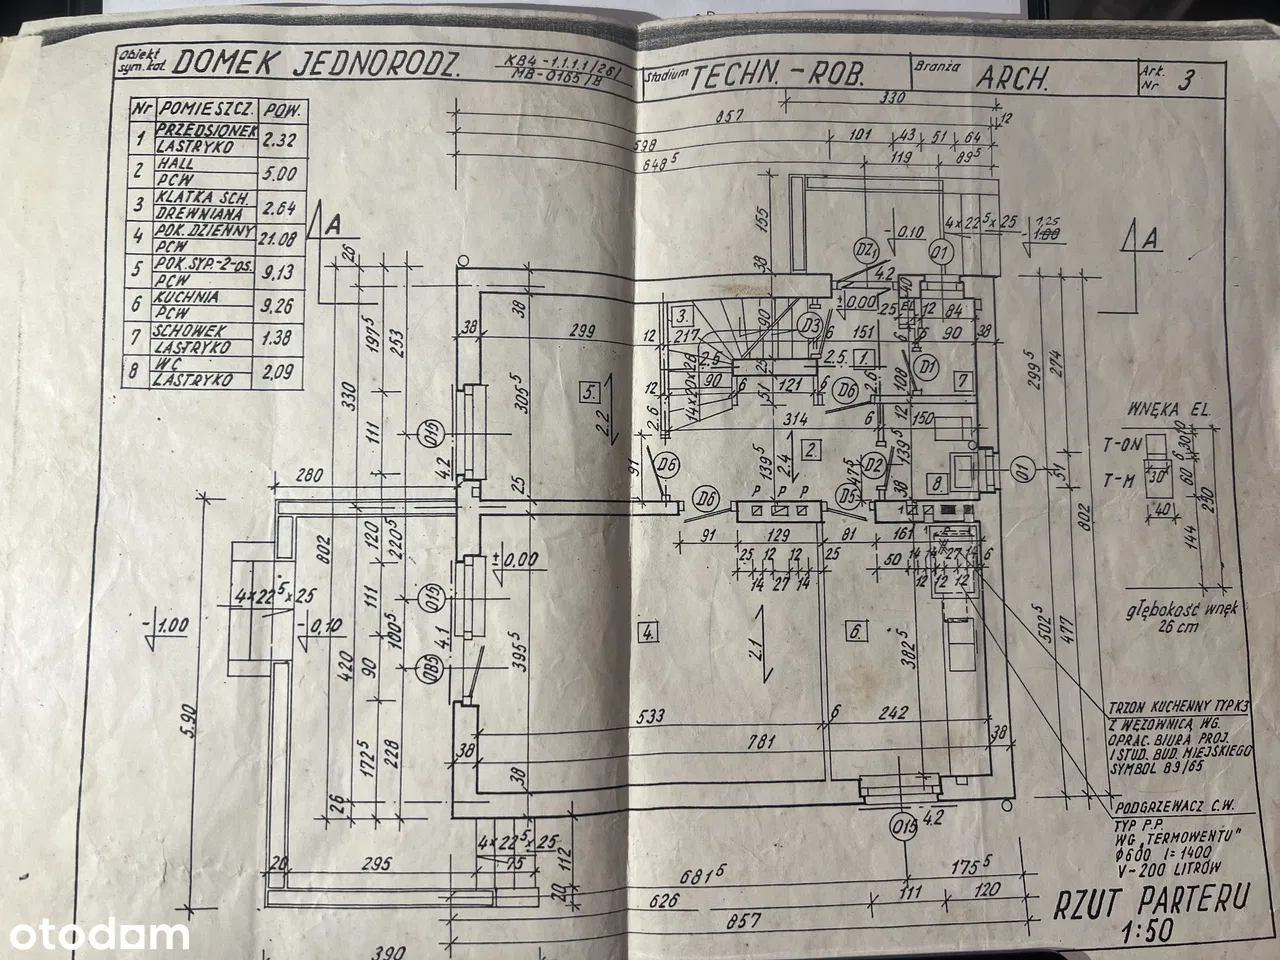 Obiekt
sym. kat.
DOMEK JEDNORODZ.
KB4-1.1.1.1/26/
MB-0165/B
Stadium
TECHN.-ROB.
Branża
ARCH.
Ark.
Nr 3
Nr POMIESZCZ. POW.
1 PRZEDSIONEK LASTRYKO 2.32
2 HALL PCW 5.00
3 KLATKA SCH. DREWNIANA 2.64
4 POK. DZIENNY PCW 21.08
5 POK. SYP.-2-OS. PCW 9,13
6 KUCHNIA PCW 9,26
7 SCHOWEK LASTRYKO 1.38
8 WC LASTRYKO 2,09
330
857
12
598
101 43 51 64
648⁵
119 89⁵
A
A
155
38
-0.10
4×22⁵×25
1,25
-1.00
DZ1
O1
4.2
26
197⁵
253
330
111
38
299
38
305⁵
12
217
3.
90
D3
±0.00
151
25
EL
12 84
90
38
40
299⁵
274
2.5
2.5
1.
D1
7
12
90
6
25
121
6
51
14×20×28
D6
2.6
108
12
5.
2.2
2.6
314
6
150
2.
139⁵
2.4
139⁵
O15
4.2
91
D6
D2
8
O1
51
802
25
D6
P P P
D5
147⁵
38
280
91 129 81 161
25 12 12 25
14 27 14
50 14 14 27 14 6
12 12 12
802
120
220⁵
±0.00
4×22⁵×25
-1.00
-0,10
O15
111
4.1
100⁵
OB5
90
420
395⁵
4.
2.1
6.
382⁵
502⁵
477
5.90
172⁵
228
26
533
6
242
781
38
38
38
O15
4.2
4×22⁵×25
75
112
20
20
295
681⁵
175⁵
626
111
120
857
390
WNĘKA EL.
T-ON
T-M
30
40
10
30
6
60
144
250
głębokość wnęk
26 cm
TRZON KUCHENNY TYP K3
Z WĘŻOWNICĄ WG.
OPRAC. BIURA PROJ.
I STUD. BUD. MIEJSKIEGO
SYMBOL 89/65
PODGRZEWACZ C.W.
TYP P.P.
WG „TERMOWENTU"
Φ600 l=1400
V-200 LITRÓW
RZUT PARTERU
1:50
otodom